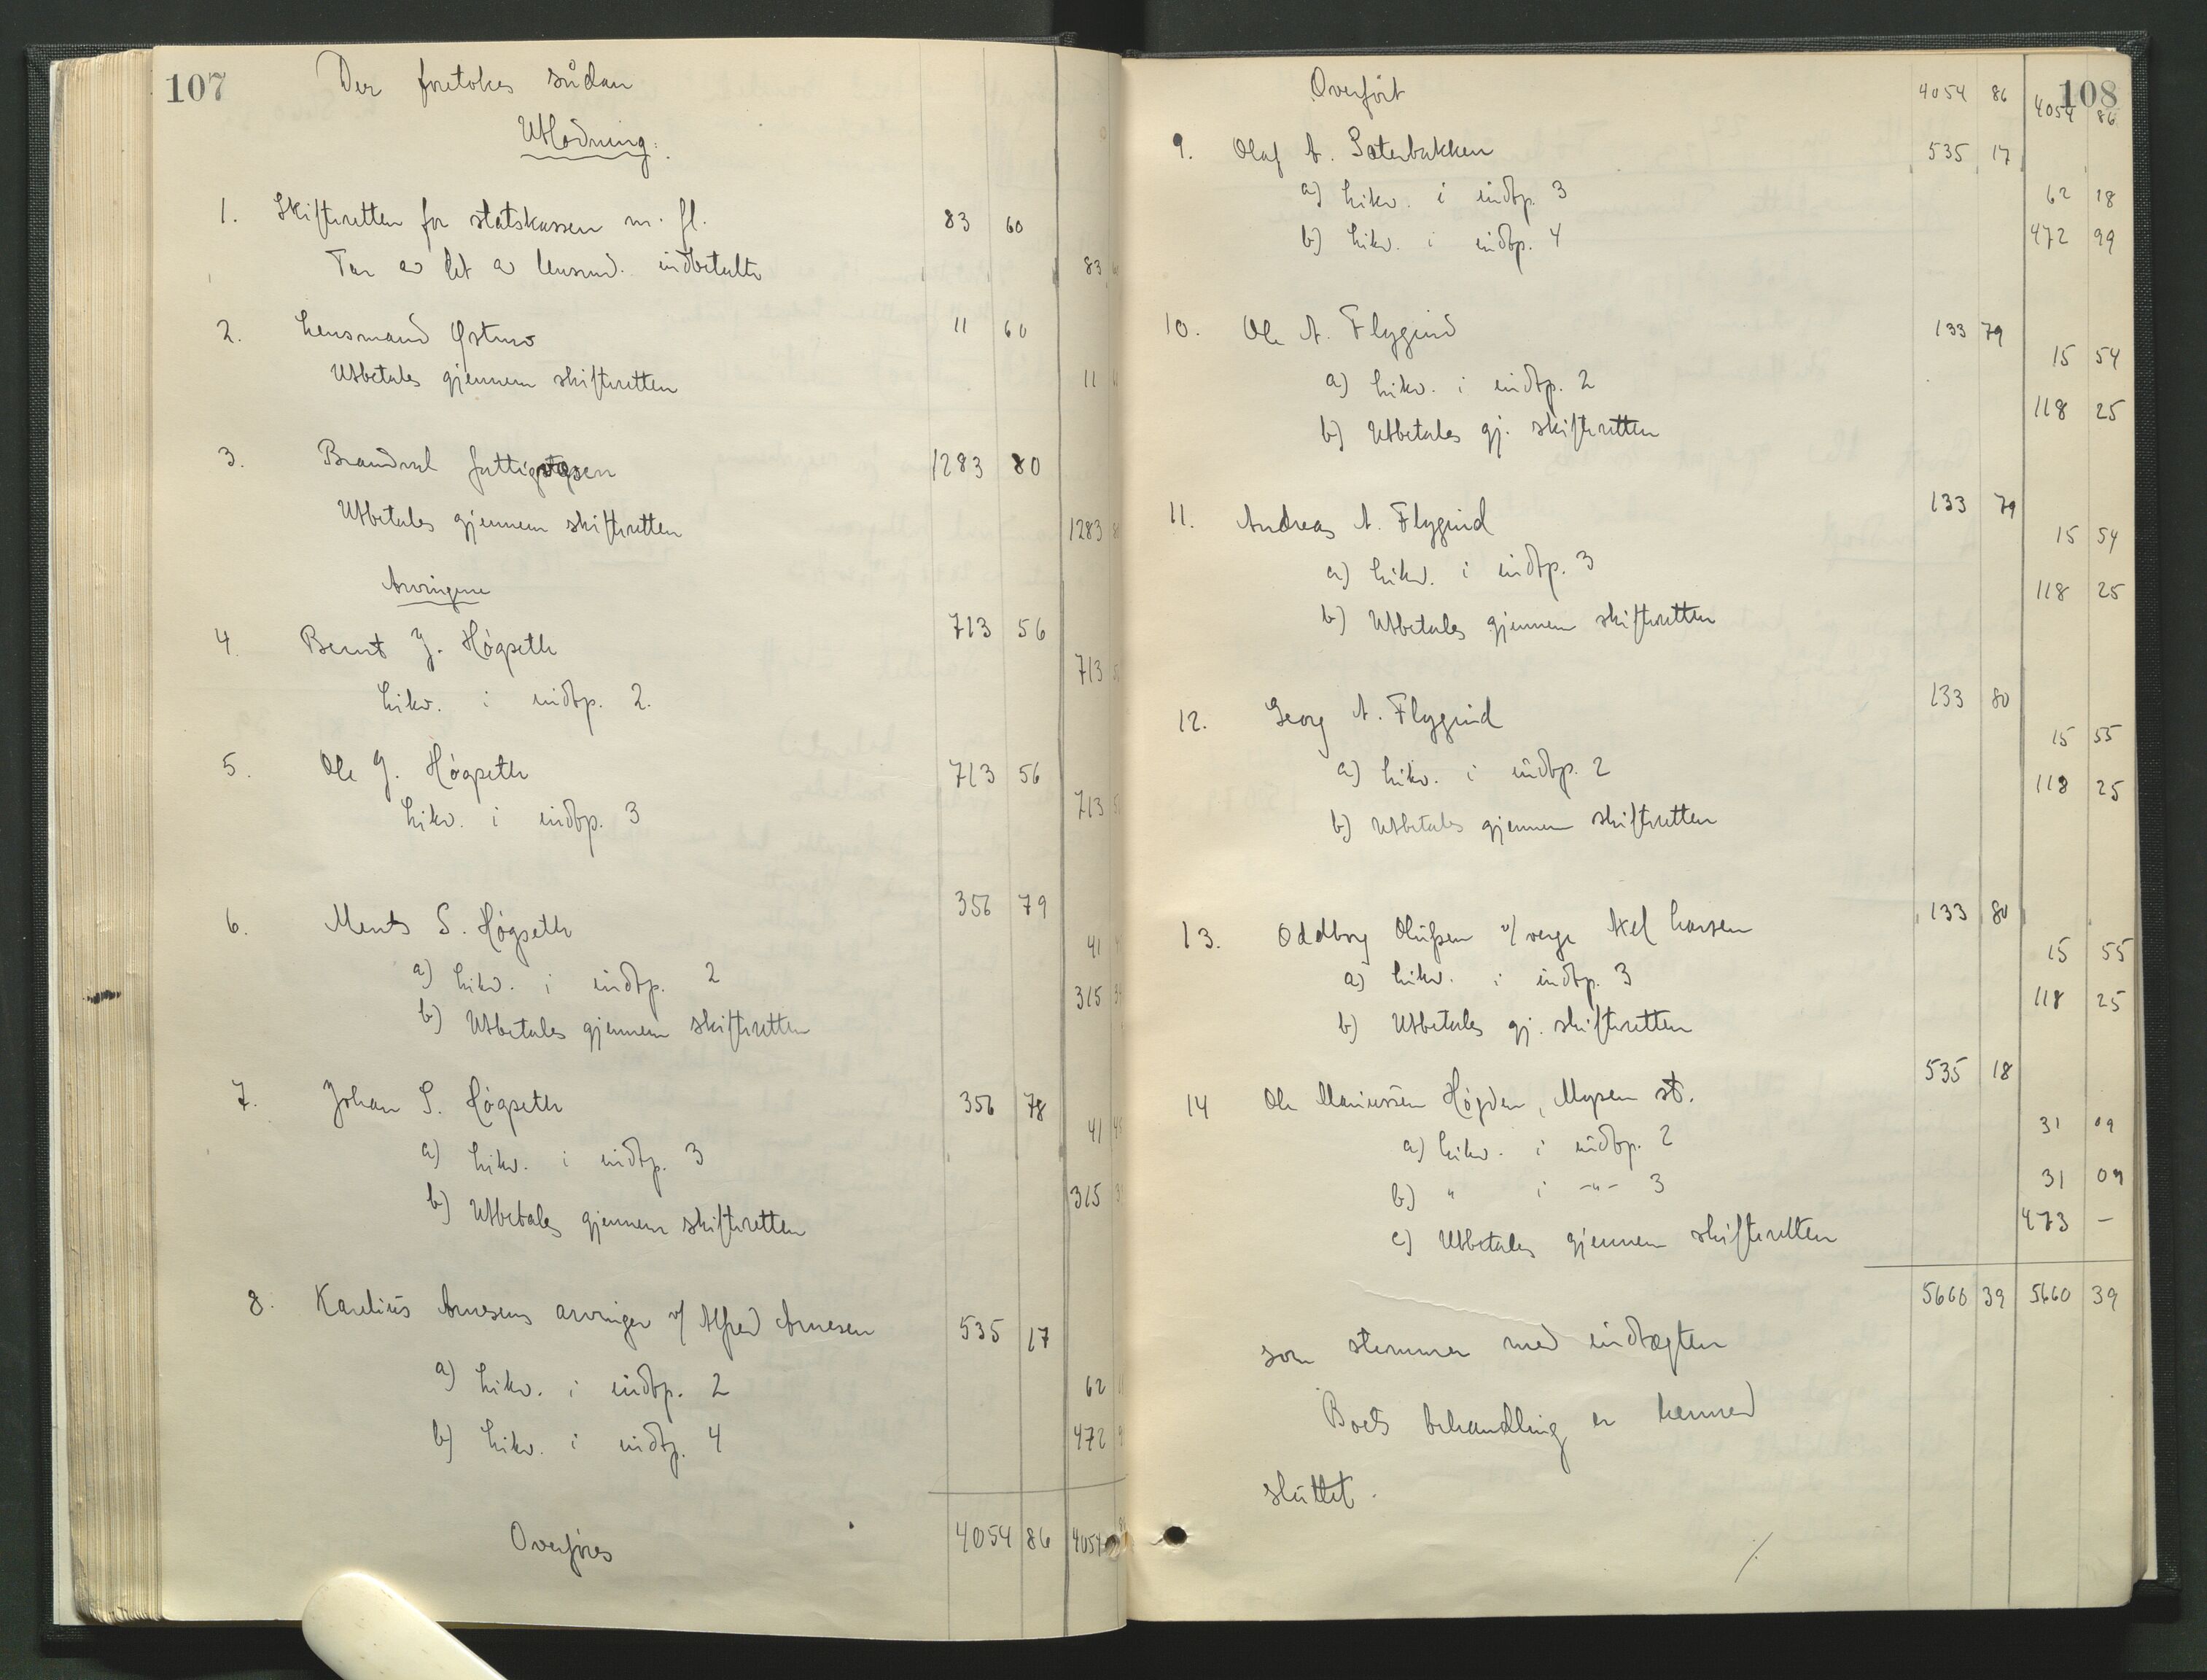 107
Der foretokes sådan
Utlodning:
1. Skifteretten for statskassen m. fl. 83 60
Tar av det av lensmd. indbetalte 83
2. Lensmand Østmo 11 60
Utbetales gjennem skifteretten 11
3. Brandval fattigvæsen 1283 80
Utbetales gjennem skifteretten 1283
Arvingene
4. Bernt J. Högseth 713 56
Likv. i indtp. 2. 713
5. Ole J. Högseth 713 56
Likv. i indtp. 3 713
6. Ments S. Högseth 356 79
a) Likv. i indtp. 2 41
b) Utbetales gjennem skifteretten 315
7. Johan S. Högseth 356 78
a) Likv. i indtp. 3 41
b) Utbetales gjennem skifteretten 315
8. Karelius Arnesens arvinger v/ Alfred Arnesen 535 17
a) Likv. i indtp. 2 62
b) Likv. i indtp. 4 472
Overføres 4054 86 4054
108
Overført 4054 86 4054 86
9. Olaf A. Sæterbakken 535 17
a) Likv. i indtp. 3 62 18
b) Likv. i indtp. 4 472 99
10. Ole A. Flygind 133 79
a) Likv. i indtp. 2 15 54
b) Utbetales gj. skifteretten 118 25
11. Andreas A. Flygind 133 79
a) Likv. i indtp. 3 15 54
b) Utbetales gjennem skifteretten 118 25
12. Georg A. Flygind 133 80
a) Likv. i indtp. 2 15 55
b) Utbetales gjennem skifteretten 118 25
13. Oddborg Olufsen v/ verge Axel Larsen 133 80
a) Likv. i indtp. 3 15 55
b) Utbetales gj. skifteretten 118 25
14 Ole Mariussen Högden, Mysen st. 535 18
a) Likv. i indtp. 2 31 09
b) " i -"- 3 31 09
c) Utbetales gjennem skifteretten 473 -
5660 39 5660 39
som stemmer med indtægten
Boets behandling er hermed
sluttet.